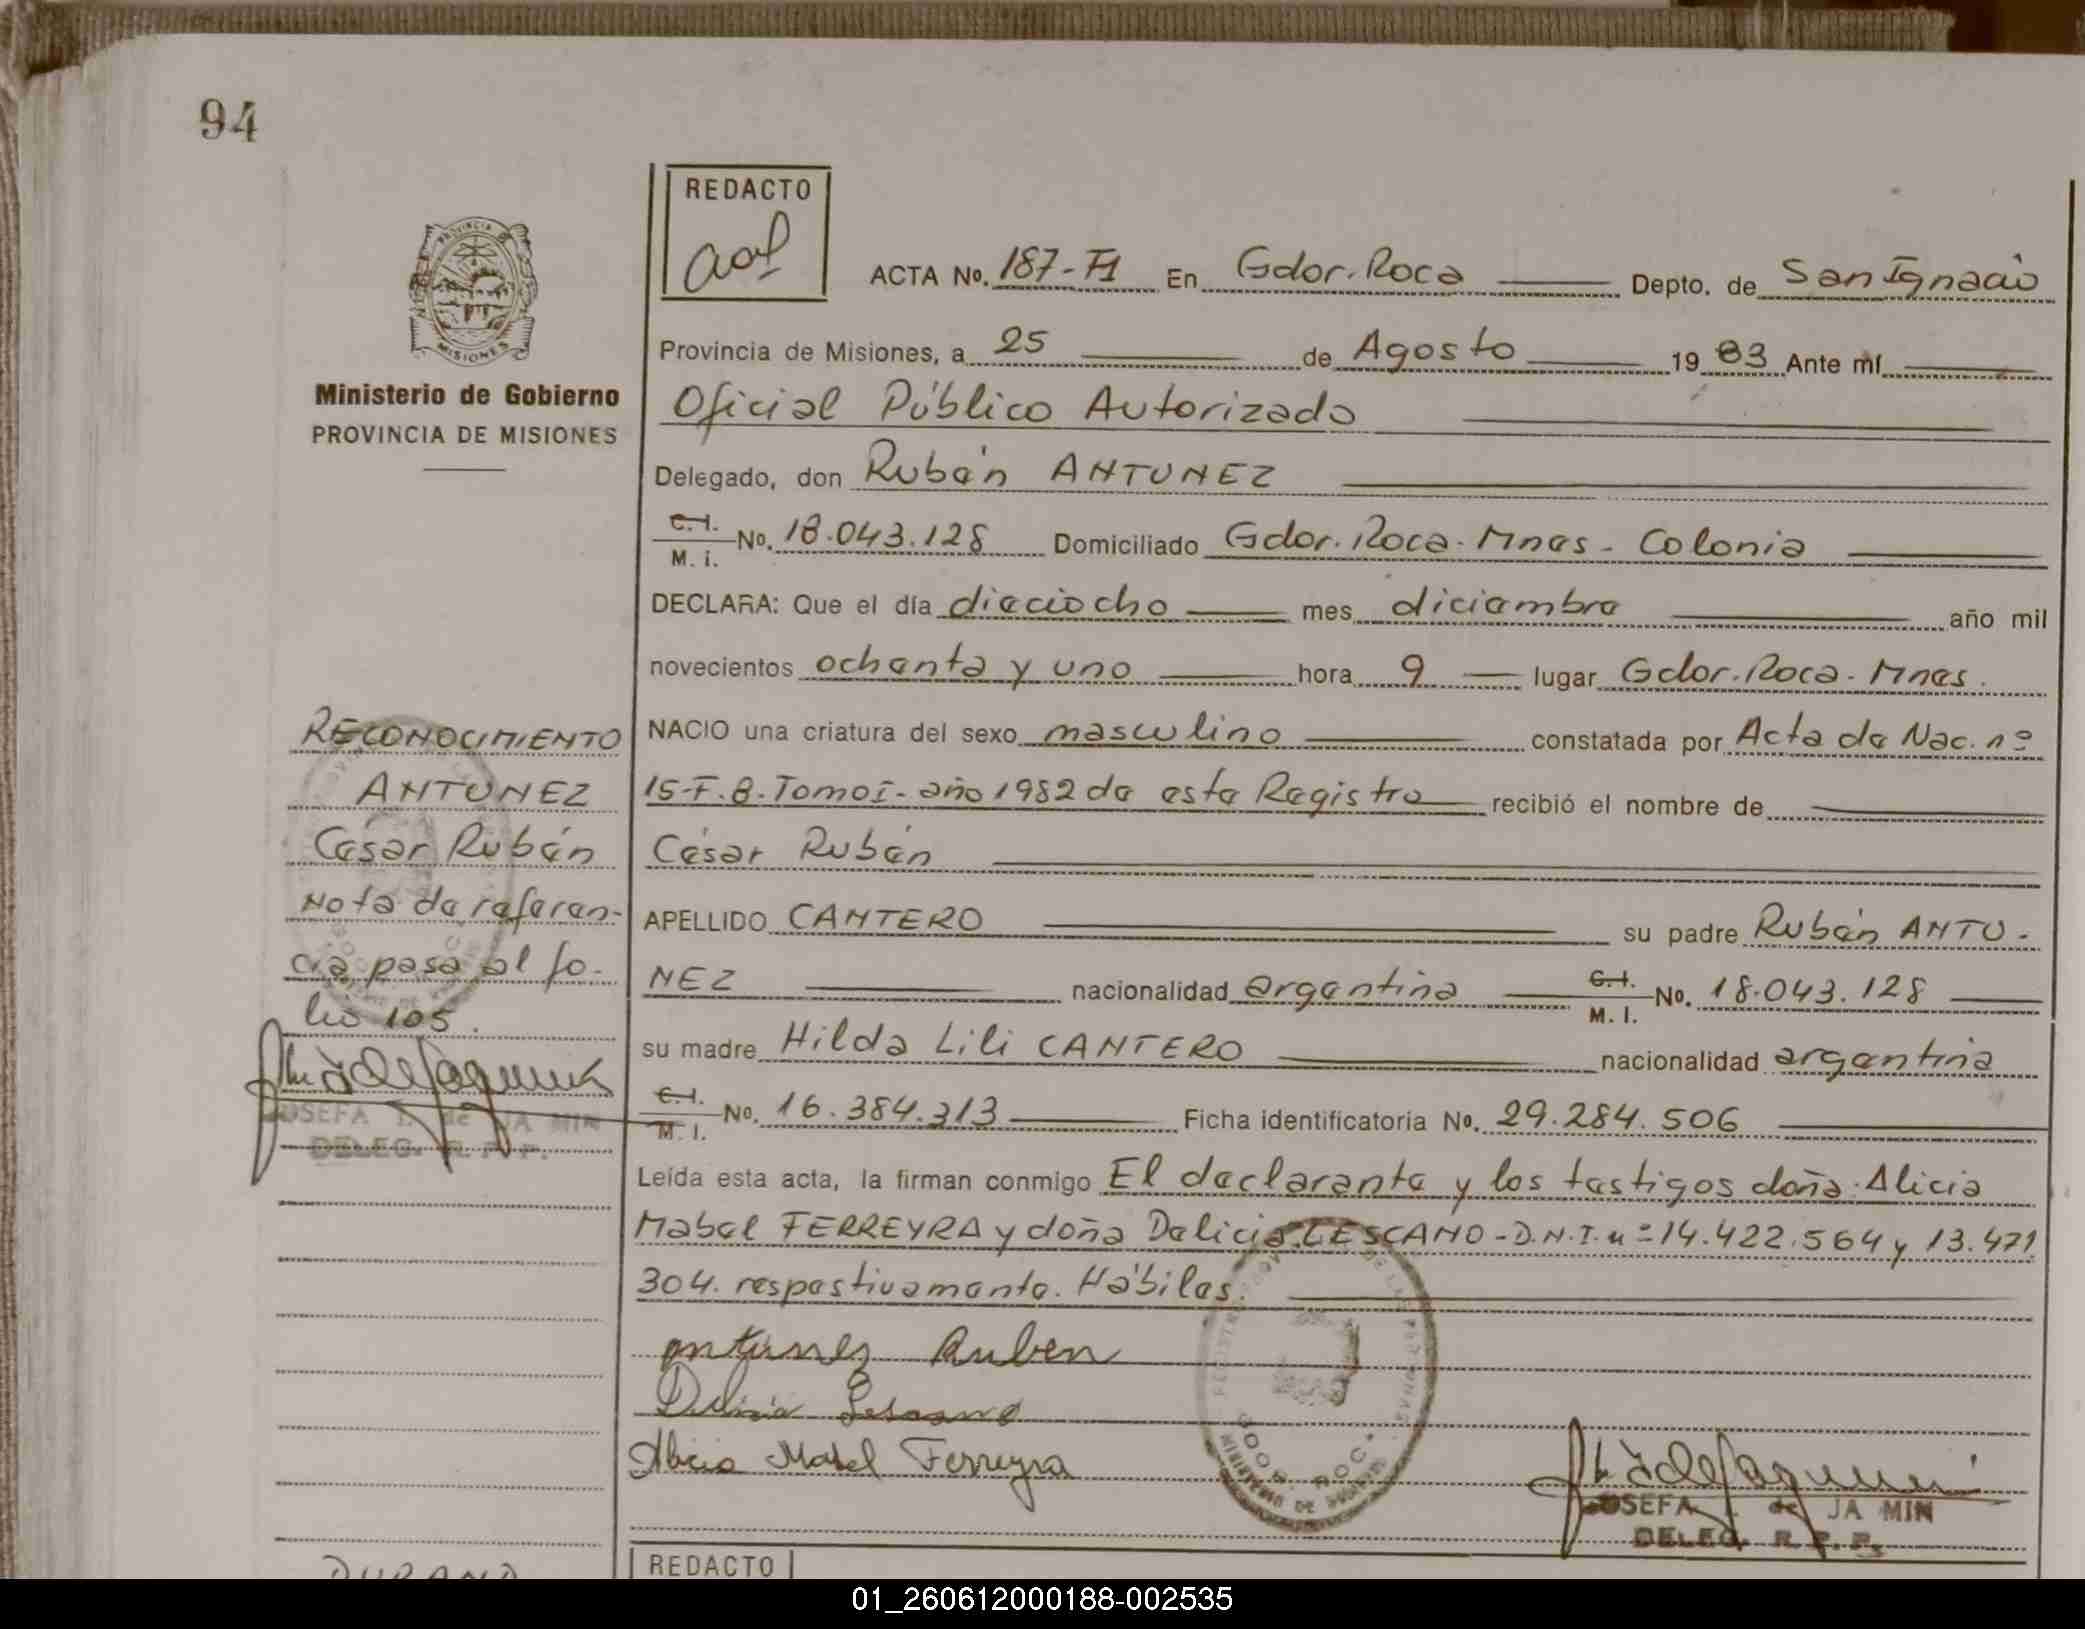 94
REDACTO
PROVINCIA DE
MISIONES
Ministerio de Gobierno
PROVINCIA DE MISIONES
ACTA No. 187-F1 En Gdor. Roca Depto. de San Ignacio
Provincia de Misiones, a 25 de Agosto 1983 Ante mí
Oficial Público Autorizado
Delegado, don Rubén ANTUNEZ
C.I. M. I. No. 18.043.128 Domiciliado Gdor. Roca - Mnes - Colonia
DECLARA: Que el día dieciocho mes diciembre año mil
novecientos ochenta y uno hora 9 lugar Gdor. Roca - Mnes.
NACIO una criatura del sexo masculino constatada por Acta de Nac. nº
15-F.8-Tomo I - año 1982 de este Registro recibió el nombre de
César Rubén
APELLIDO CANTERO su padre Rubén ANTU-
NEZ nacionalidad argentina C.I. M. I. No. 18.043.128
su madre Hilda Lili CANTERO nacionalidad argentina
C.I. M. I. No. 16.384.313 Ficha identificatoria No. 29.284.506
Leída esta acta, la firman conmigo El declarante y los testigos doña Alicia
Mabel FERREYRA y doña Delicia LESCANO - D.N.I. nº 14.422.564 y 13.471
304. respestivamente. Hábiles.
Antunez Ruben
Delicia Lescano
Alicia Mabel Ferreyra
JOSEFA de JA MIN
DELEG. R. P. P.
RECONOCIMIENTO
ANTUNEZ
César Rubén
Nota de referen-
cia pasa al fo-
lio 105.
JOSEFA de JA MIN
DELEG. R. P. P.
DURAND
REDACTO
01_260612000188-002535